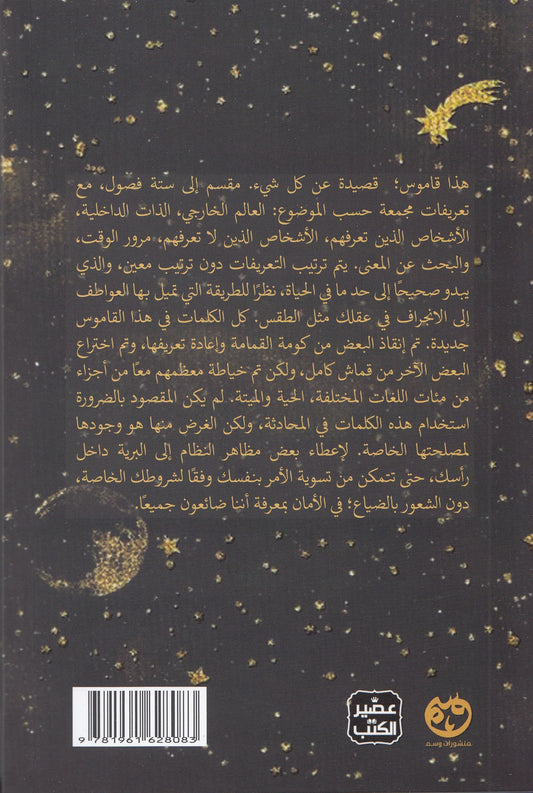 هذا قاموس؛ قصيدة عن كل شيء. مقسم إلى ستة فصول، مع
تعريفات مجمعة حسب الموضوع: العالم الخارجي، الذات الداخلية،
الأشخاص الذين تعرفهم، الأشخاص الذين لا تعرفهم، مرور الوقت،
والبحث عن المعنى. يتم ترتيب التعريفات دون ترتيب معين، والذي
يبدو صحيحًا إلى حد ما في الحياة، نظرًا للطريقة التي تميل بها العواطف
إلى الانجراف في عقلك مثل الطقس. كل الكلمات في هذا القاموس
جديدة. تم إنقاذ البعض من كومة القمامة وإعادة تعريفها، وتم اختراع
البعض الآخر من قماش كامل، ولكن تم خياطة معظمهم معًا من أجزاء
من مئات اللغات المختلفة، الحية والميتة. لم يكن المقصود بالضرورة
استخدام هذه الكلمات في المحادثة، ولكن الغرض منها هو وجودها
لمصلحتها الخاصة. لإعطاء بعض مظاهر النظام إلى البرية داخل
رأسك، حتى تتمكن من تسوية الأمر بنفسك وفقًا لشروطك الخاصة،
دون الشعور بالضياع؛ في الأمان بمعرفة أننا ضائعون جميعًا.
9 781961 628083
عصير
الكتب
وسم
منشورات وسم